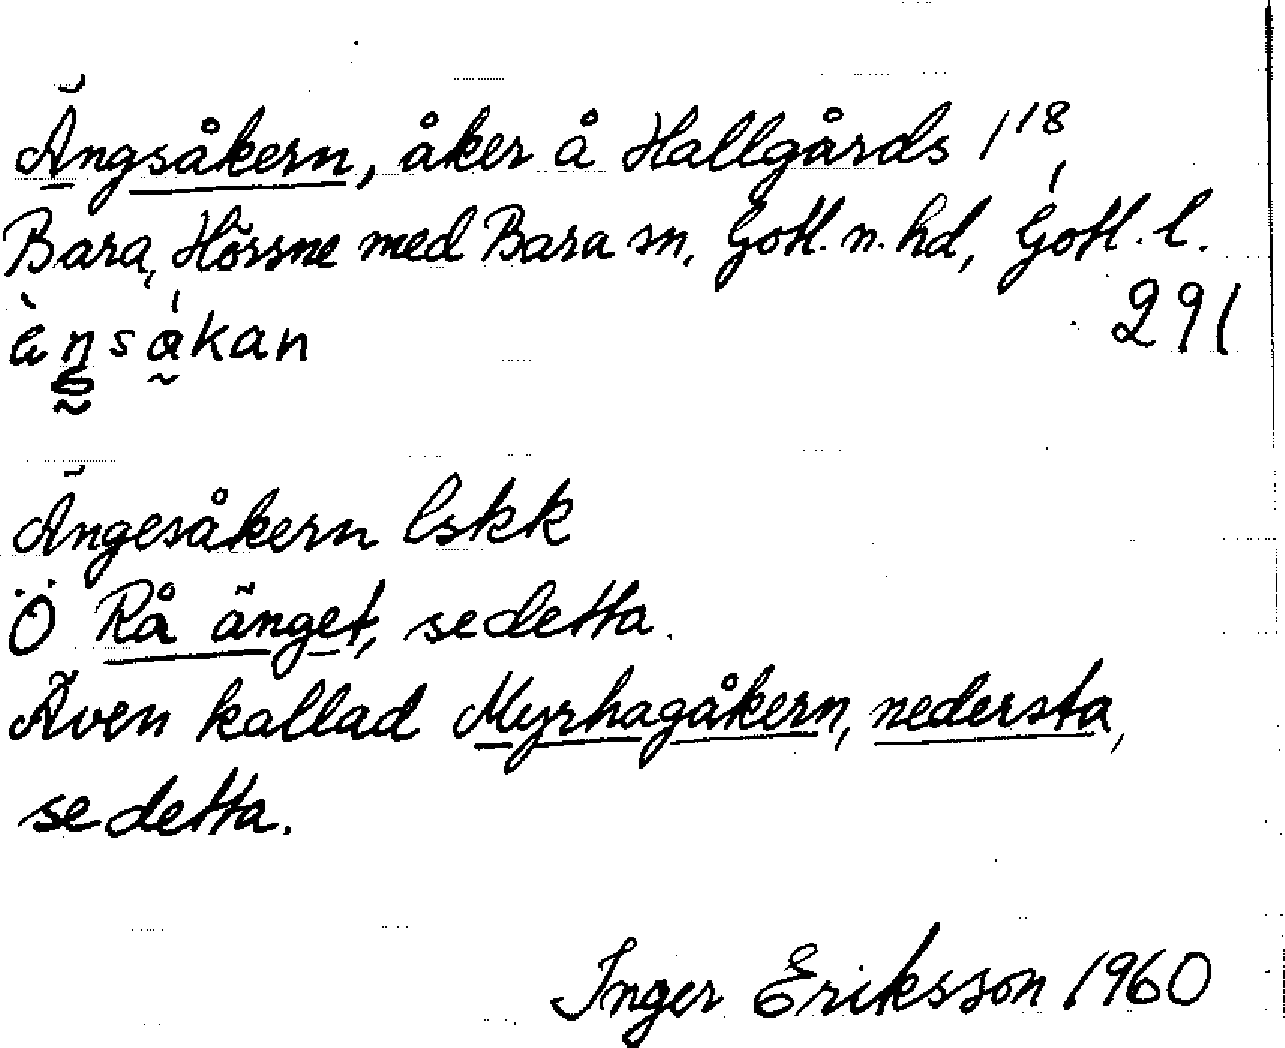 Ängsåkern, åker å Hallgårds 1¹⁸,
Bara, Hörsne med Bara sn, Gotl. n. hd, Gotl. l.
291
ä̀nsákan
Ängesåkern lskk
Ö Rå änget, se detta.
Även kallad Myrhagåkern, nedersta,
se detta.
Inger Eriksson 1960